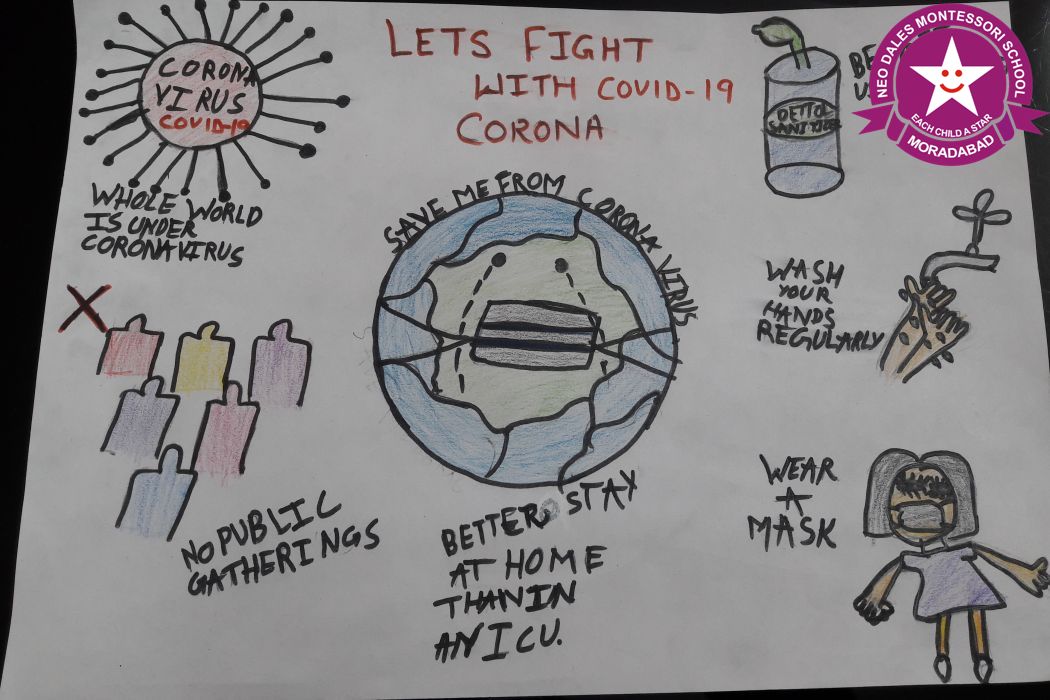 LETS FIGHT
WITH COVID-19
CORONA
CORONA
VIRUS
COVID-19
WHOLE WORLD
IS UNDER
CORONAVIRUS
SAVE ME FROM CORONA VIRUS
DETTOL
NEO DALES MONTESSORI SCHOOL
EACH CHILD A STAR
MORADABAD
WASH
YOUR
HANDS
REGULARLY
NO PUBLIC
GATHERINGS
BETTER STAY
AT HOME
THAN IN
AN ICU.
WEAR
A
MASK